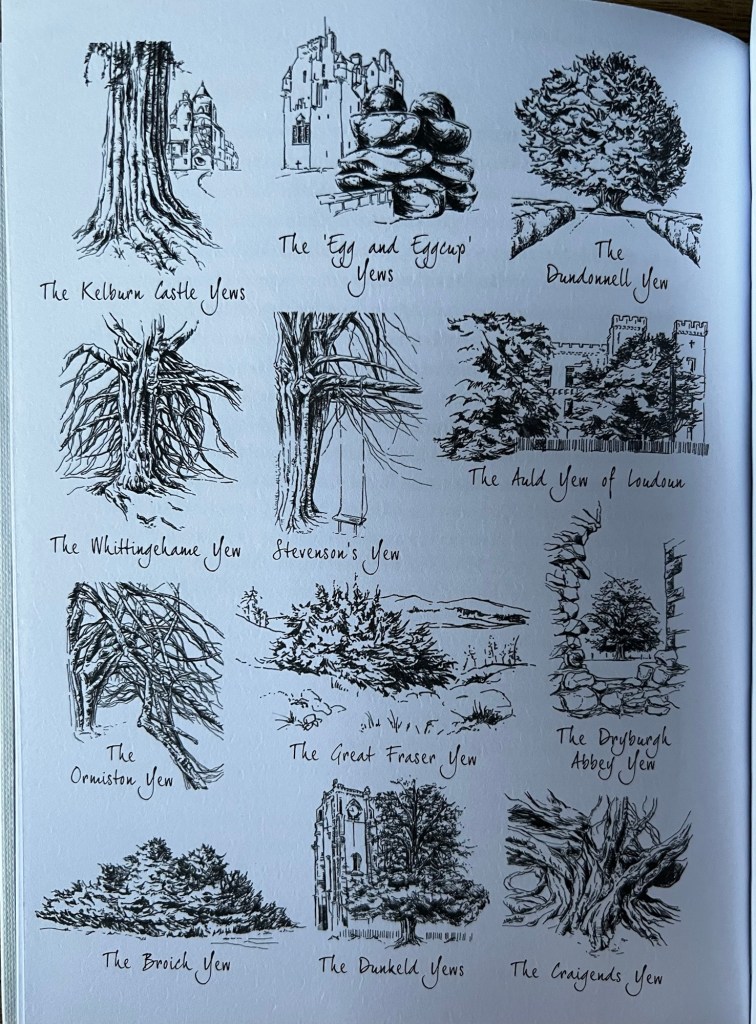 The Kelburn Castle Yews
The 'Egg and Eggcup'
Yews
The
Dundonnell Yew
The Whittingehame Yew
Stevenson's Yew
The Auld Yew of Loudoun
The
Ormiston Yew
The Great Fraser Yew
The Dryburgh
Abbey Yew
The Broich Yew
The Dunkeld Yews
The Craigends Yew